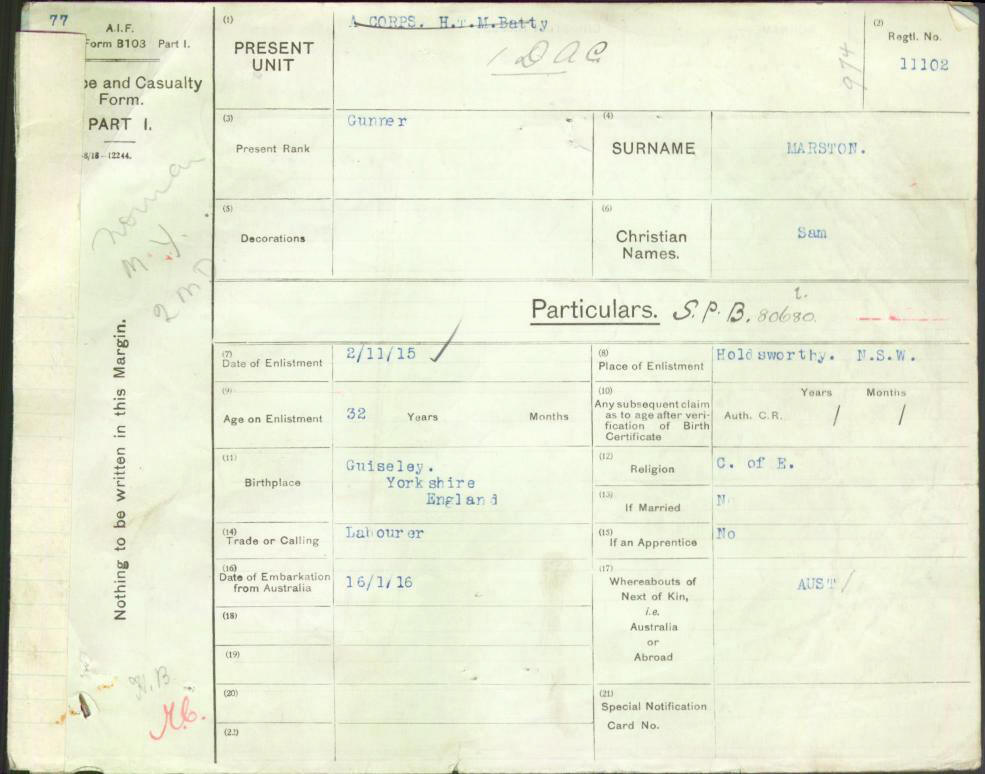 77
A.I.F.
Form B103 Part I.
and Casualty
Form.
PART I.
8/18—12244.
Norman
M. Y.
2 MD
Nothing to be written in this Margin.
N.B.
(1)
PRESENT
UNIT
A CORPS. H.T.M.Batty
1 DAC
974
(2)
Regtl. No.
11102
(3)
Present Rank
Gunner
(4)
SURNAME
MARSTON.
(5)
Decorations
(6)
Christian
Names.
Sam
Particulars. S.P.B. 80680.
(7)
Date of Enlistment
2/11/15
(8)
Place of Enlistment
Holdsworthy. N.S.W.
(9)
Age on Enlistment
32 Years Months
(10)
Any subsequent claim
as to age after veri-
fication of Birth
Certificate
Years Months
Auth. C.R. / /
(11)
Birthplace
Guiseley.
Yorkshire
England
(12)
Religion
C. of E.
(13)
If Married
No
(14)
Trade or Calling
Labourer
(15)
If an Apprentice
No
(16)
Date of Embarkation
from Australia
16/1/16
(17)
Whereabouts of
Next of Kin,
i.e.
Australia
or
Abroad
AUST/
(18)
(19)
(20)
(21)
Special Notification
Card No.
(22)